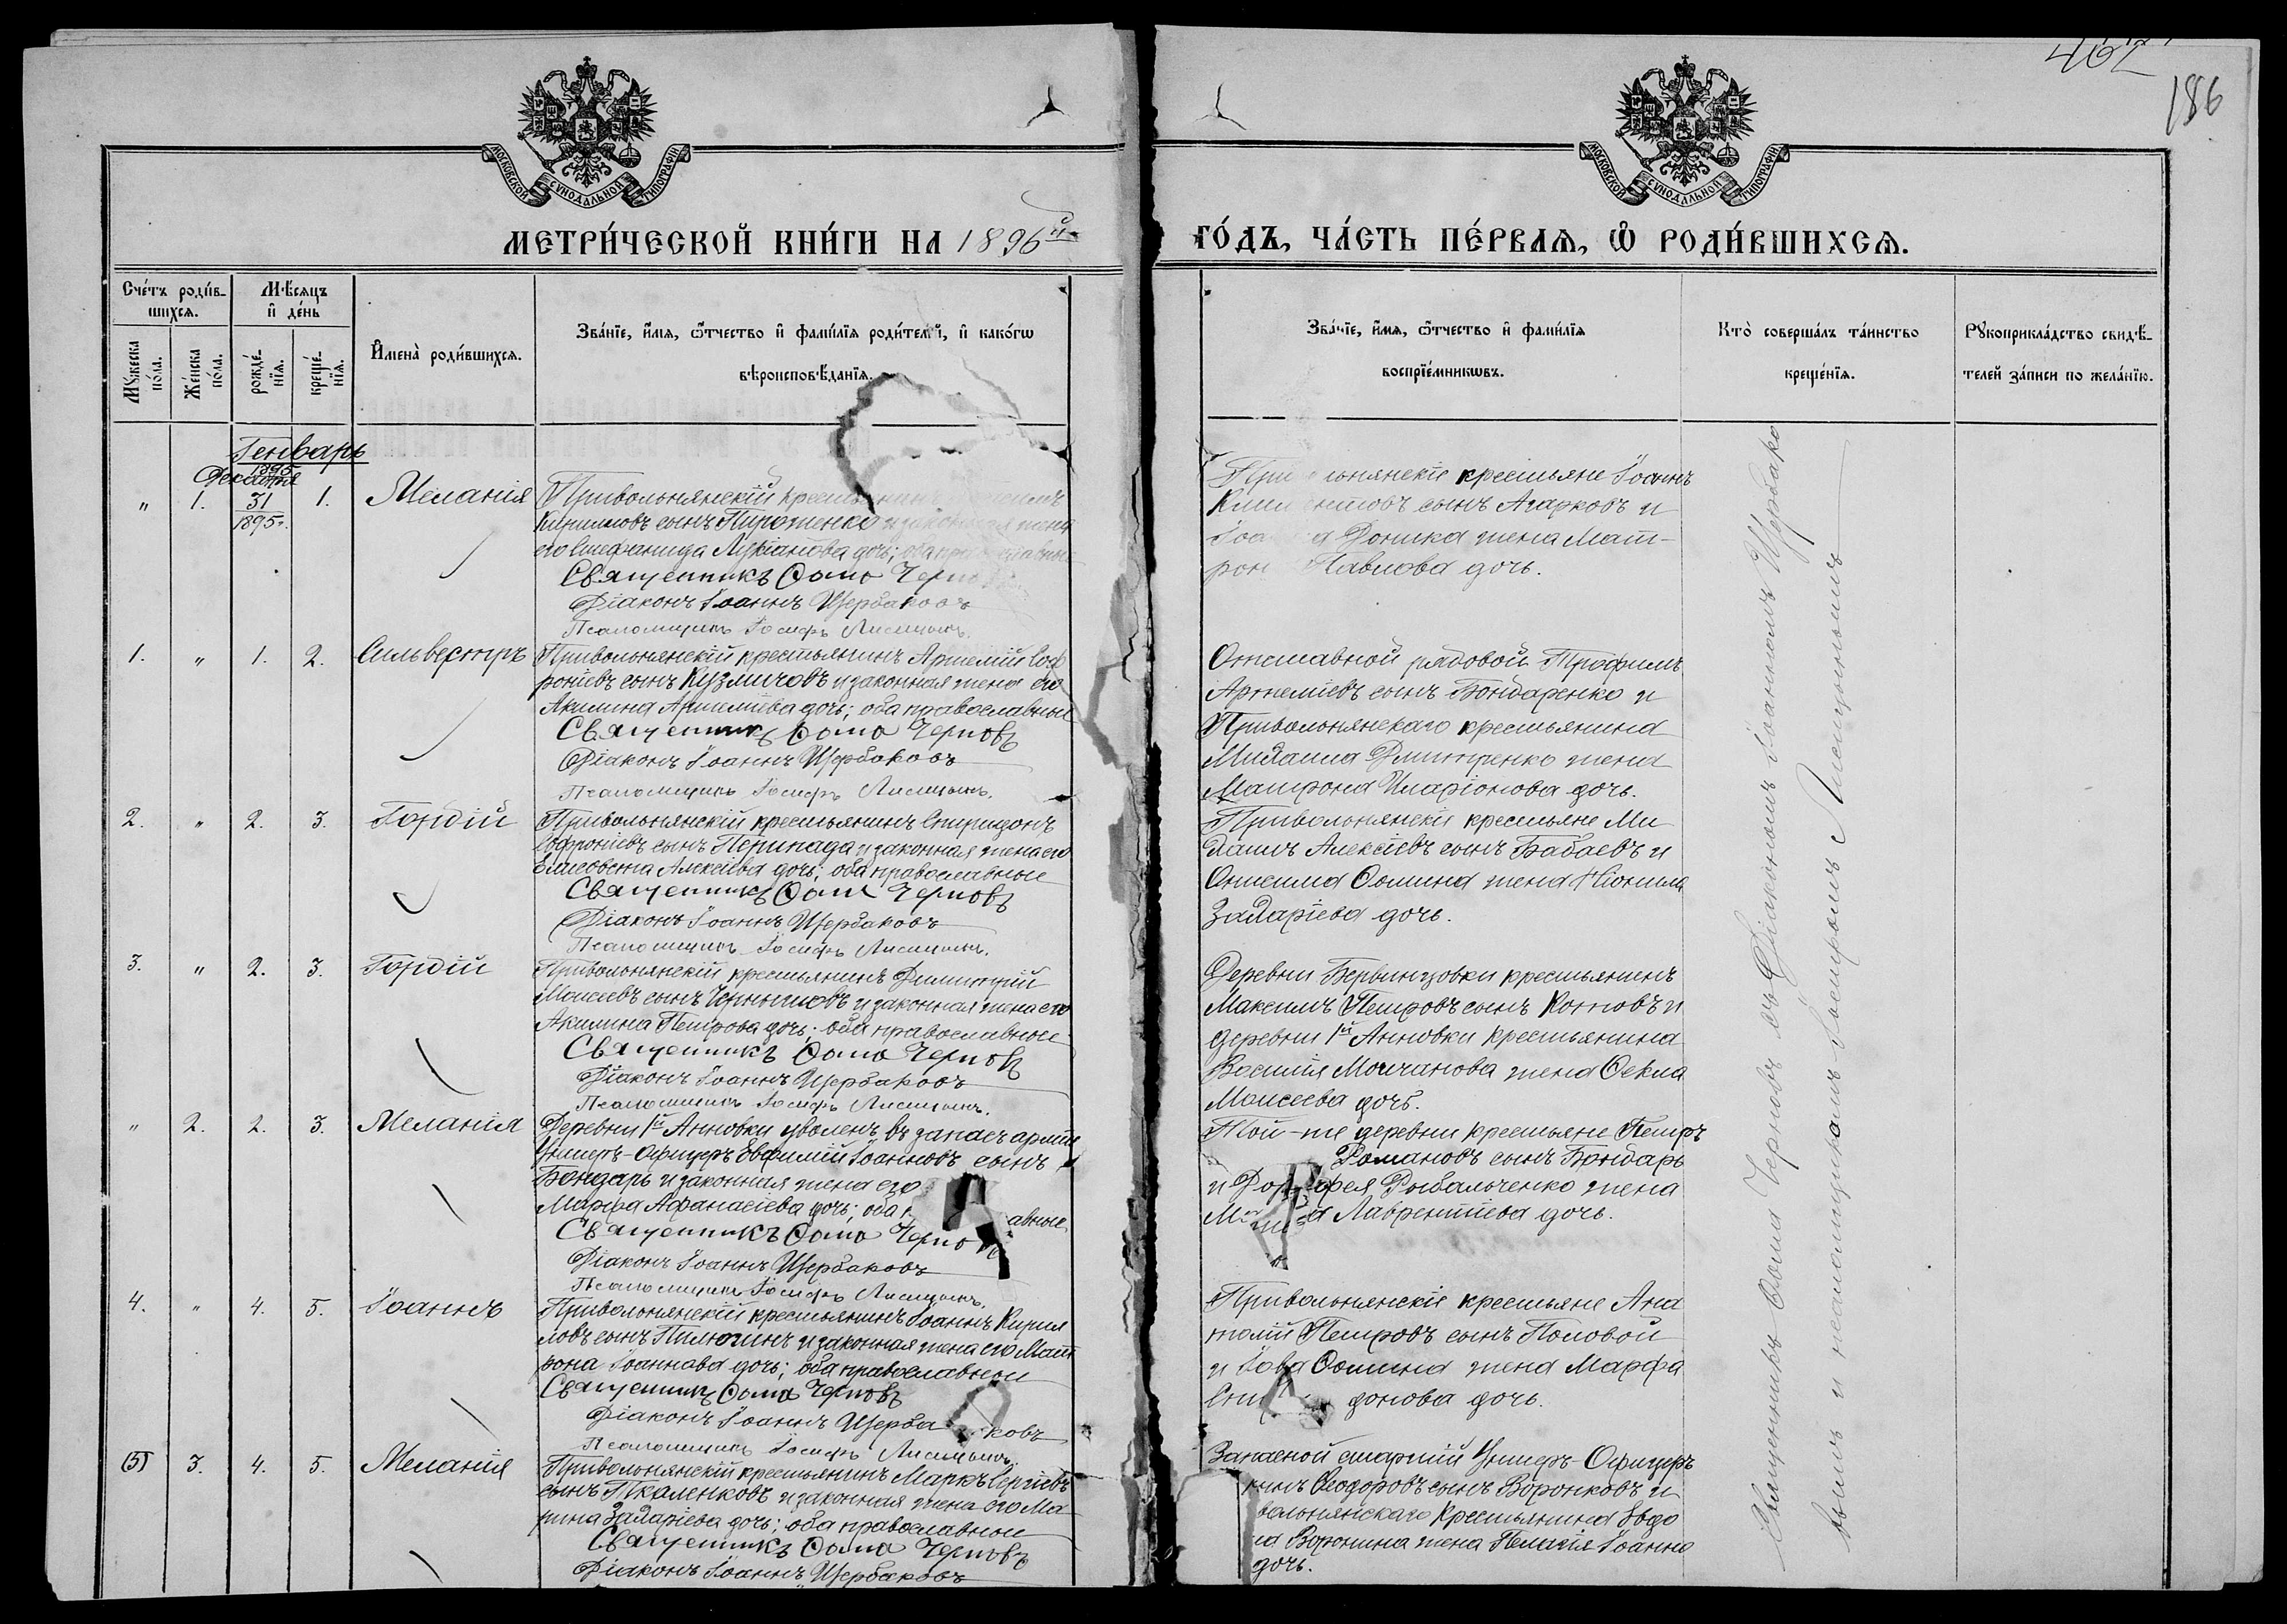 462
186
МОСКОВСКОЙ СѴНОДАЛЬНОЙ ТИПОГРАФІИ
МОСКОВСКОЙ СѴНОДАЛЬНОЙ ТИПОГРАФІИ
МЕТРИ́ЧЕСКОЙ КНИ́ГИ НА 1896й
ГО́ДЪ, ЧА́СТЬ ПЕ́РВАѦ, Ѡ҆ РОДИ́ВШИХСѦ.
Сче́тъ роди́в-
шихсѧ.
Мꙋ́жеска по́ла.
Же́нска по́ла.
Мѣ́сѧцъ
и҆ де́нь
рожде́-нїѧ.
креще́-нїѧ.
И҆мена̀ роди́вшихсѧ.
Зва́нїе, и҆́мѧ, ѻ҆́тчество и҆ фами́лїѧ роди́телей, и҆ како́гѡ
вѣроисповѣ́данїѧ.
Зва́нїе, и҆́мѧ, ѻ҆́тчество и҆ фами́лїѧ
воспрїе́мникѡвъ.
Кто̀ соверша́лъ та́инство
креще́нїѧ.
Рꙋкоприкла́дство свидѣ́-
телей за́писи по жела́нїю.
Генварь
1895
Декабря
" 1. 31 1. Меланія
1895г.
Привольнянскій
Кирилловъ сынъ Пироженко и законная жена
его Стефанида Лукіанова дочь; оба православные
Священникъ Ѳома Чернов
Діаконъ Іоаннъ Щербаковъ
Псаломщикъ Іосифъ Лисицынъ.
Привольнянскіе крестьяне Іоаннъ
Климентовъ сынъ Агарковъ и
Доника жена Мат-
рона Павлова дочь.
1. " 1. 2. Сильвестръ
Привольнянскій крестьянинъ Артемій Соф
роніевъ сынъ Кузмичовъ и законная жена его
Акилина Артеміева дочь; оба православные
Священникъ Ѳома Черновъ
Діаконъ Іоаннъ Щербаковъ
Псаломщикъ Іосифъ Лисицынъ.
Отставной рядовой Трофимъ
Артеміевъ сынъ Бондаренко и
Привольнянскаго крестьянина
Михаила Дмитренко жена
Матрона Иларіонова дочь.
2. " 2. 3. Гордій
Привольнянскій крестьянинъ Спиридонъ
Софроніевъ сынъ Перипада и законная жена его
Елисавета Алексіева дочь; оба православные
Священникъ Ѳома Черновъ
Діаконъ Іоаннъ Щербаковъ
Псаломщикъ Іосифъ Лисицынъ.
Привольнянскіе крестьяне Ми
хаилъ Алексіевъ сынъ Бабаевъ и
Онисима Ѳомина жена Неонила
Захаріева дочь.
3. " 2. 3. Гордій
Привольнянскій крестьянинъ Димитрій
Моисеевъ сынъ Чернышовъ и законная жена его
Акилина Петрова дочь; оба православные
Священникъ Ѳома Черновъ
Діаконъ Іоаннъ Щербаковъ
Псаломщикъ Іосифъ Лисицынъ.
Деревни крестьянинъ
Максимъ Петровъ сынъ Котовъ и
деревни 1й Анновки крестьянина
Василія Молчанова жена Ѳекла
Моисеева дочь.
" 2. 2. 3. Меланія
Деревни 1й Анновки уволенъ въ запасъ арміи
Унтеръ-Офицеръ Евфимій Іоанновъ сынъ
Бондарь и законная жена его
Марѳа Аѳанасіева дочь; оба православные
Священникъ Ѳома Черновъ
Діаконъ Іоаннъ Щербаковъ
Псаломщикъ Іосифъ Лисицынъ.
Той-же деревни крестьяне Петръ
Романовъ сынъ Бондарь
и Дорофея Рыбальченко жена
Лаврентіева дочь.
4. " 4. 5. Іоаннъ
Привольнянскій крестьянинъ Іоаннъ Кирил
ловъ сынъ Пилюгинъ и законная жена его Мат
рона Іоаннова дочь; оба православные
Священникъ Ѳома Черновъ
Діаконъ Іоаннъ Щербаковъ
Псаломщикъ Іосифъ Лисицынъ.
Привольнянскіе крестьяне Ана
толій Петровъ сынъ Половой
и Іова Ѳомина жена Марѳа
Спиридонова дочь.
(5) 3. 4. 5. Меланія
Привольнянскій крестьянинъ Маркъ Сергіевъ
сынъ Ткаленковъ и законная жена его Ма
рина Захаріева дочь; оба православные
Священникъ Ѳома Черновъ
Діаконъ Іоаннъ Щербаковъ
Запасной старшій Унтеръ-Офицеръ
Ѳеодоровъ сынъ Воронковъ и
вольнянскаго крестьянина Евдо
Воронина жена Пелагія Іоанно
дочь.
Священникъ Ѳома Черновъ съ Діакономъ Іоанномъ Щербако
вымъ и псаломщикомъ Іосифомъ Лисицынымъ